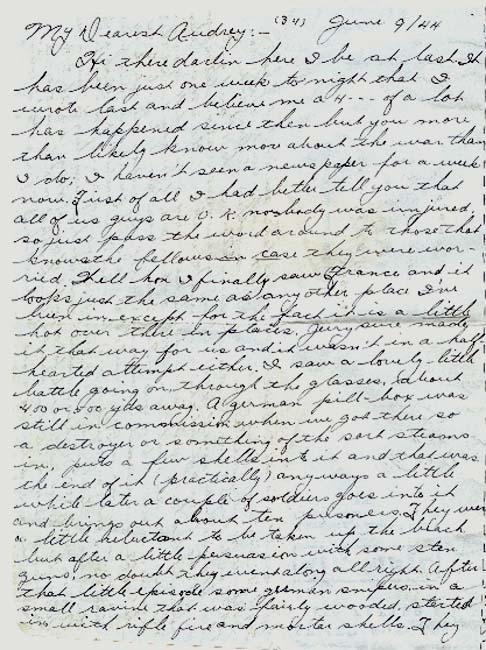 My Dearest Audrey:- (34) June 9/44
Hi there darlin here I be at last. It
has been just one week to night that I
wrote last and believe me a h--- of a lot
has happened since then but you more
than likely know more about the war than
I do, I haven't seen a newspaper for a week
now. First of all I had better tell you that
all of us guys are O.K. nobody was injured,
so just pass the word around to those that
knows the fellows in case they were wor-
ried. Well hon I finally saw France and it
looks just the same as any other place I've
been in except for the fact it is a little
hot over there in places, Jerry sure made
it that way for us and it wasn't in a half-
hearted attempt either. I saw a lovely little
battle going on, through the glasses, about
400 or 500 yds away. A german pill-box was
still in commission when we got there so
a destroyer or something of the sort steams
in, puts a few shells into it and that was
the end of it (practically) anyways a little
while later a couple of soldiers goes into it
and brings out about ten prisoners. They were
a little reluctant to be taken up the beach
but after a little persuasion with some sten
guns, no doubt they went along all right. After
that little episode some german snipers, in a
small ravine that was fairly wooded, started
in with rifle fire and mortar shells. They